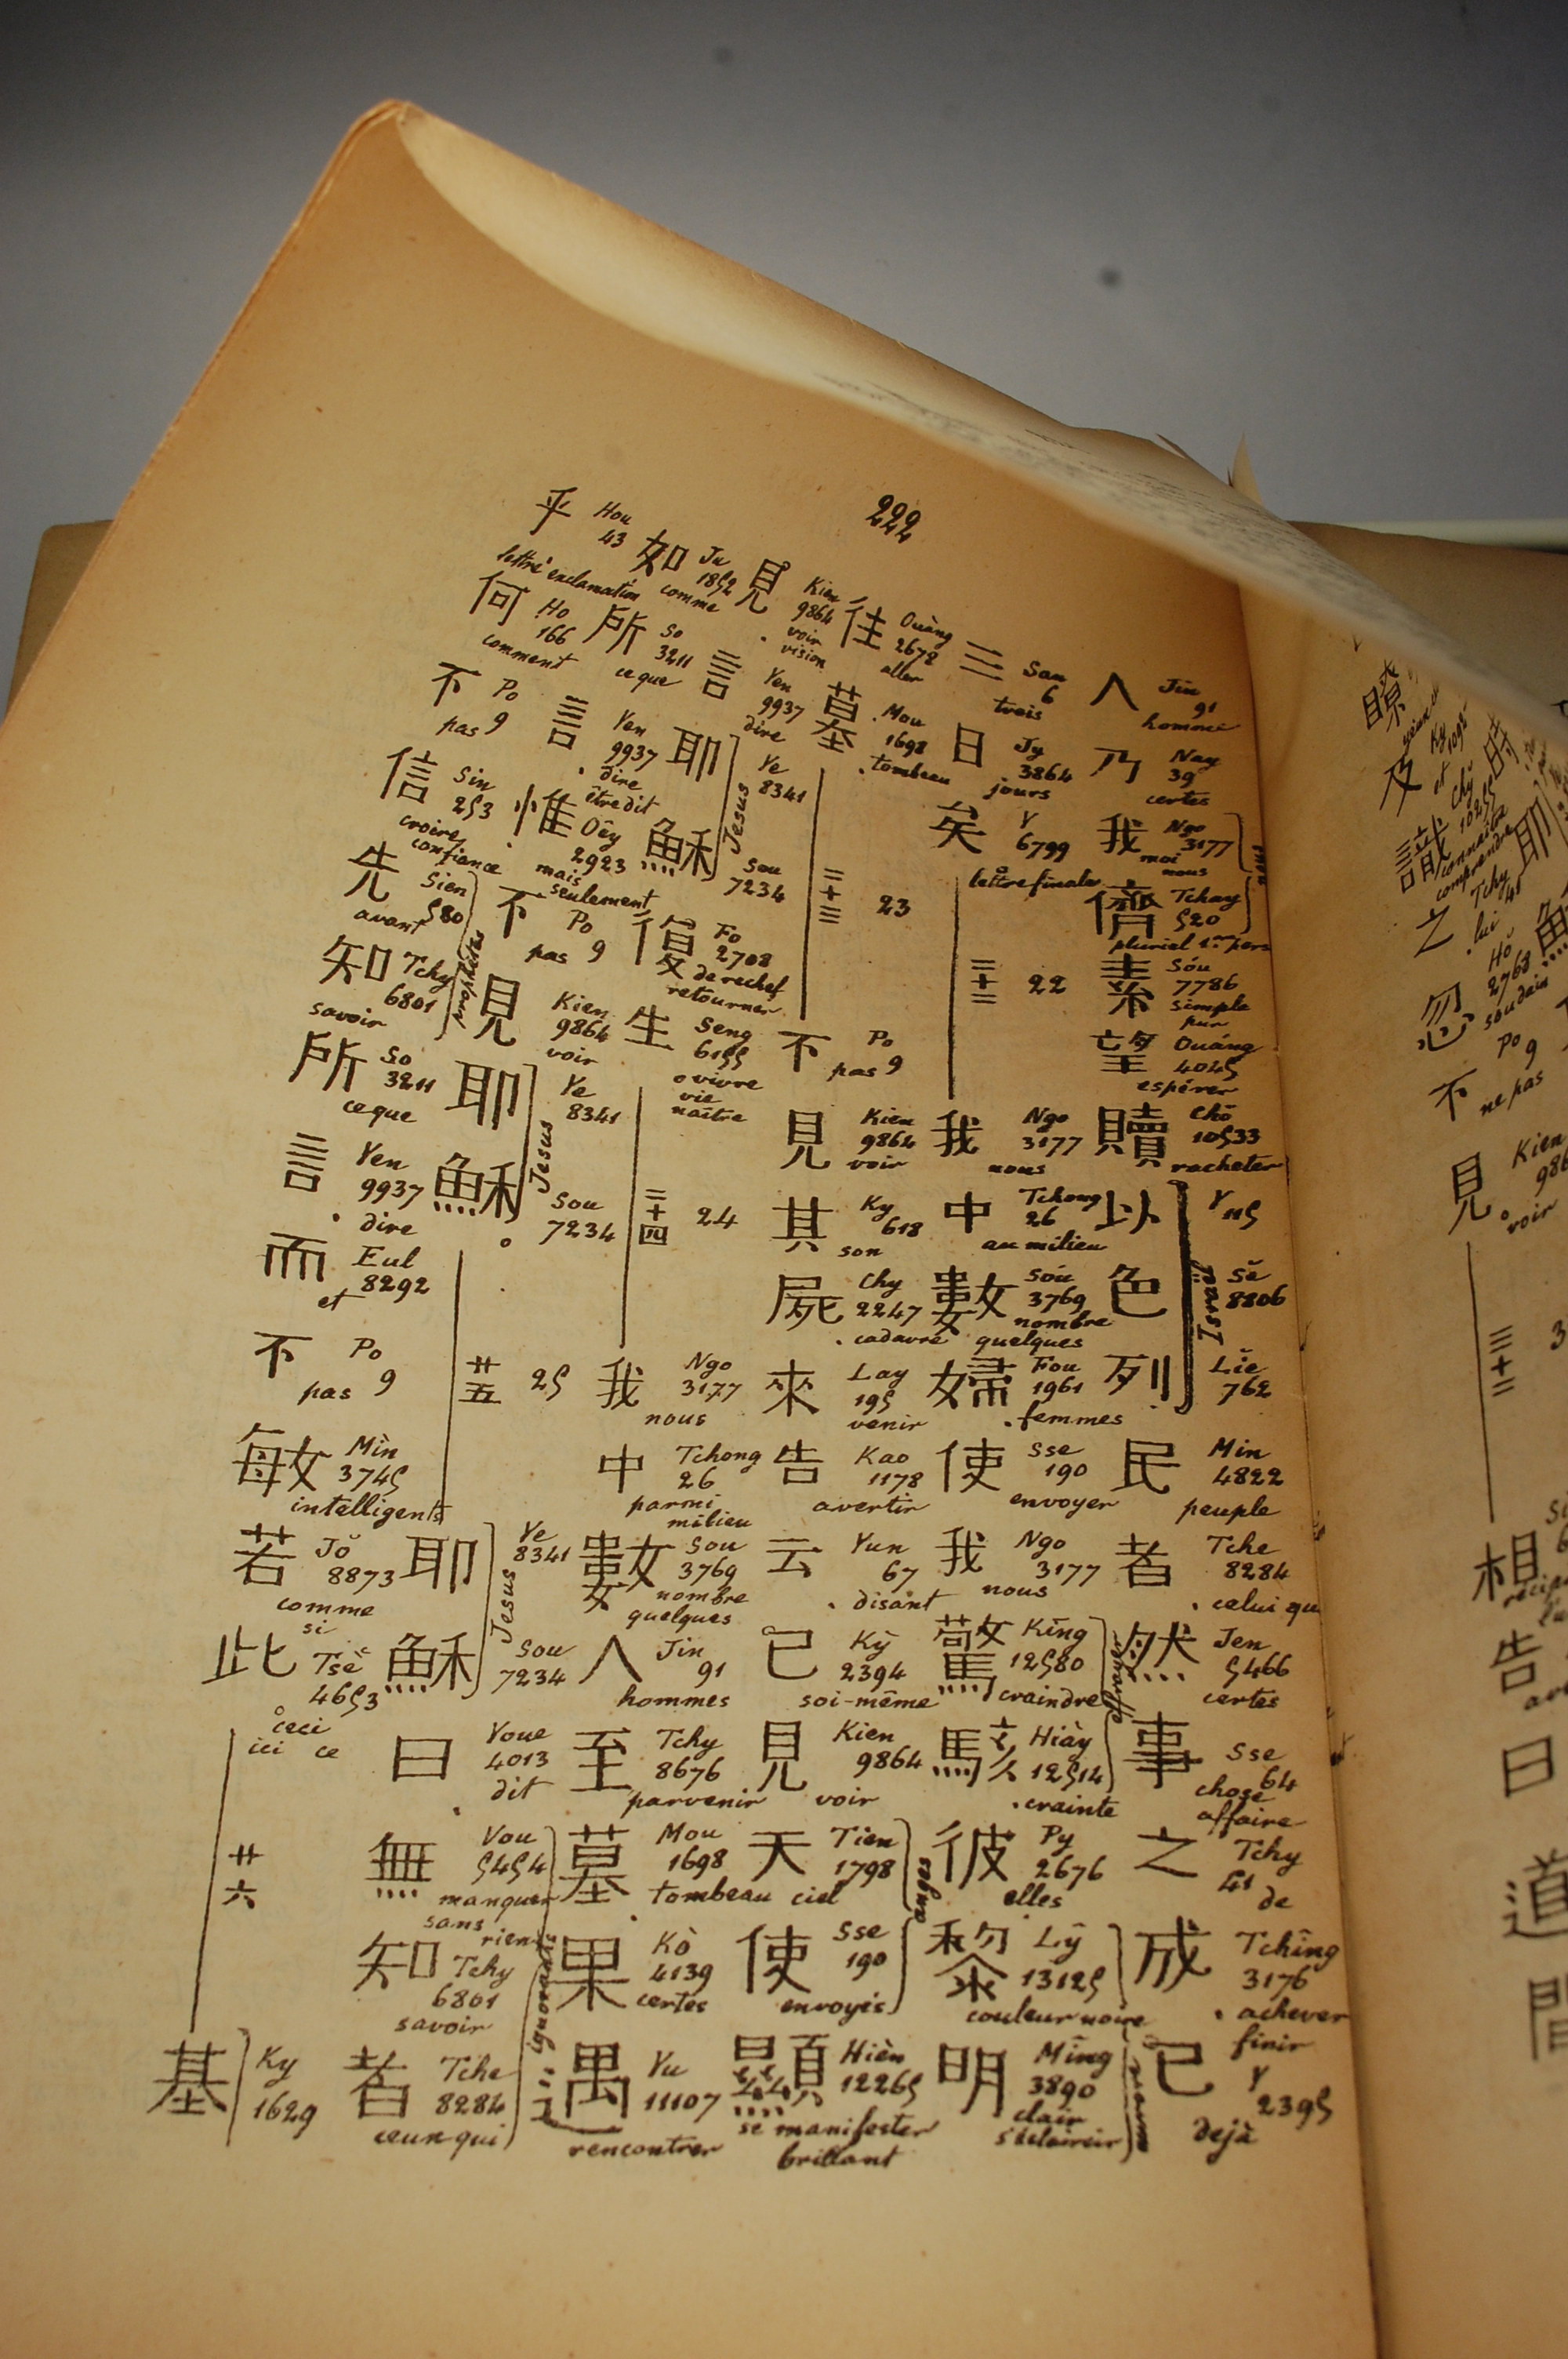 222
人 Jin 91 homme
乃 Nay 39 certes
我 Ngo 3177 moi nous
儕 Tchay 520 pluriel 1ère pers
素 Sóu 7786 simple pur
望 Ouáng 4045 espérer
贖 Chŏ 10533 racheter
以 Y 115
色 Sĕ 8806
列 Lĭe 762
Israël
民 Min 4822 peuple
者 Tche 8284 celui qu
然 Jen 5466 certes
事 Sse 64 chose affaire
之 Tchy 41 de
成 Tchîng 3176 achever finir
已 Y 2395 dejà
三 San 6 trois
日 Jy 3864 jours
矣 Y 6799 lettre finale
二十二 22
我 Ngo 3177 nous
中 Tchong 26 au milieu
數 Sóu 3769 nombre quelques
婦 Fou 1961 femmes
使 Sse 190 envoyer
我 Ngo 3177 nous
驚 Kīng 12580 craindre
駭 Hiày 12514 crainte
effrayer
彼 Py 2676 elles
黎 Lý 13125 couleur noire
明 Mîng 3890 clair s'éclaircir
往 Ouàng 2672 aller
墓 Mou 1698 tombeau
二十三 23
不 Po 9 pas
見 Kien 9864 voir
其 Ky 618 son
屍 Chy 2247 cadavre
來 Lay 195 venir
告 Kao 1178 avertir
云 Yun 67 disant
已 Ký 2394 soi-même
見 Kien 9864 voir
天 Tien 1798 ciel
使 Sse 190 envoyés
anges
顯 Hièn 12265 se manifester brillant
見 Kien 9864 voir vision
言 Yen 9937 dire
耶 Ye 8341
穌 Sou 7234
Jesus
復 Fo 2708 derechef retourner
生 Seng 6155 vivre vie naître
二十四 24
我 Ngo 3177 nous
中 Tchong 26 parmi milieu
數 Sou 3769 nombre quelques
人 Jin 91 hommes
至 Tchy 8676 parvenir
墓 Mou 1698 tombeau
果 Kò 4139 certes
遇 Yu 11107 rencontrer
如 Ju 1852 comme
所 So 3211 ce que
言 Yen 9937 dire être dit
惟 Oêy 2923 mais seulement
不 Po 9 pas
見 Kien 9864 voir
耶 Ye 8341
穌 Sou 7234
Jesus
廿五 25
耶 Ye 8341
穌 Sou 7234
Jesus
曰 Youe 4013 dit
無 Vou 5454 manquer sans rien
知 Tchy 6801 savoir
者 Tche 8284 ceux qui
乎 Hou 43 lettre exclamation
何 Ho 166 comment
不 Po 9 pas
信 Sin 253 croire, confiance
先 Sien 580 avant
知 Tchy 6801 savoir
prophètes
所 So 3211 ce que
言 Yen 9937 dire
而 Eul 8292 et
不 Po 9 pas
敏 Mìn 3745 intelligents
若 Jŏ 8873 comme si
此 Tsè 4653 ceci ici ce
廿六
基 Ky 1629
及 et
識 Chy connaître comprendre
之 Tchy 41 lui
忽 Hŏ 2768 soudain
不 Po 9 ne pas
見 Kien voir
三十二
相
告
曰
道